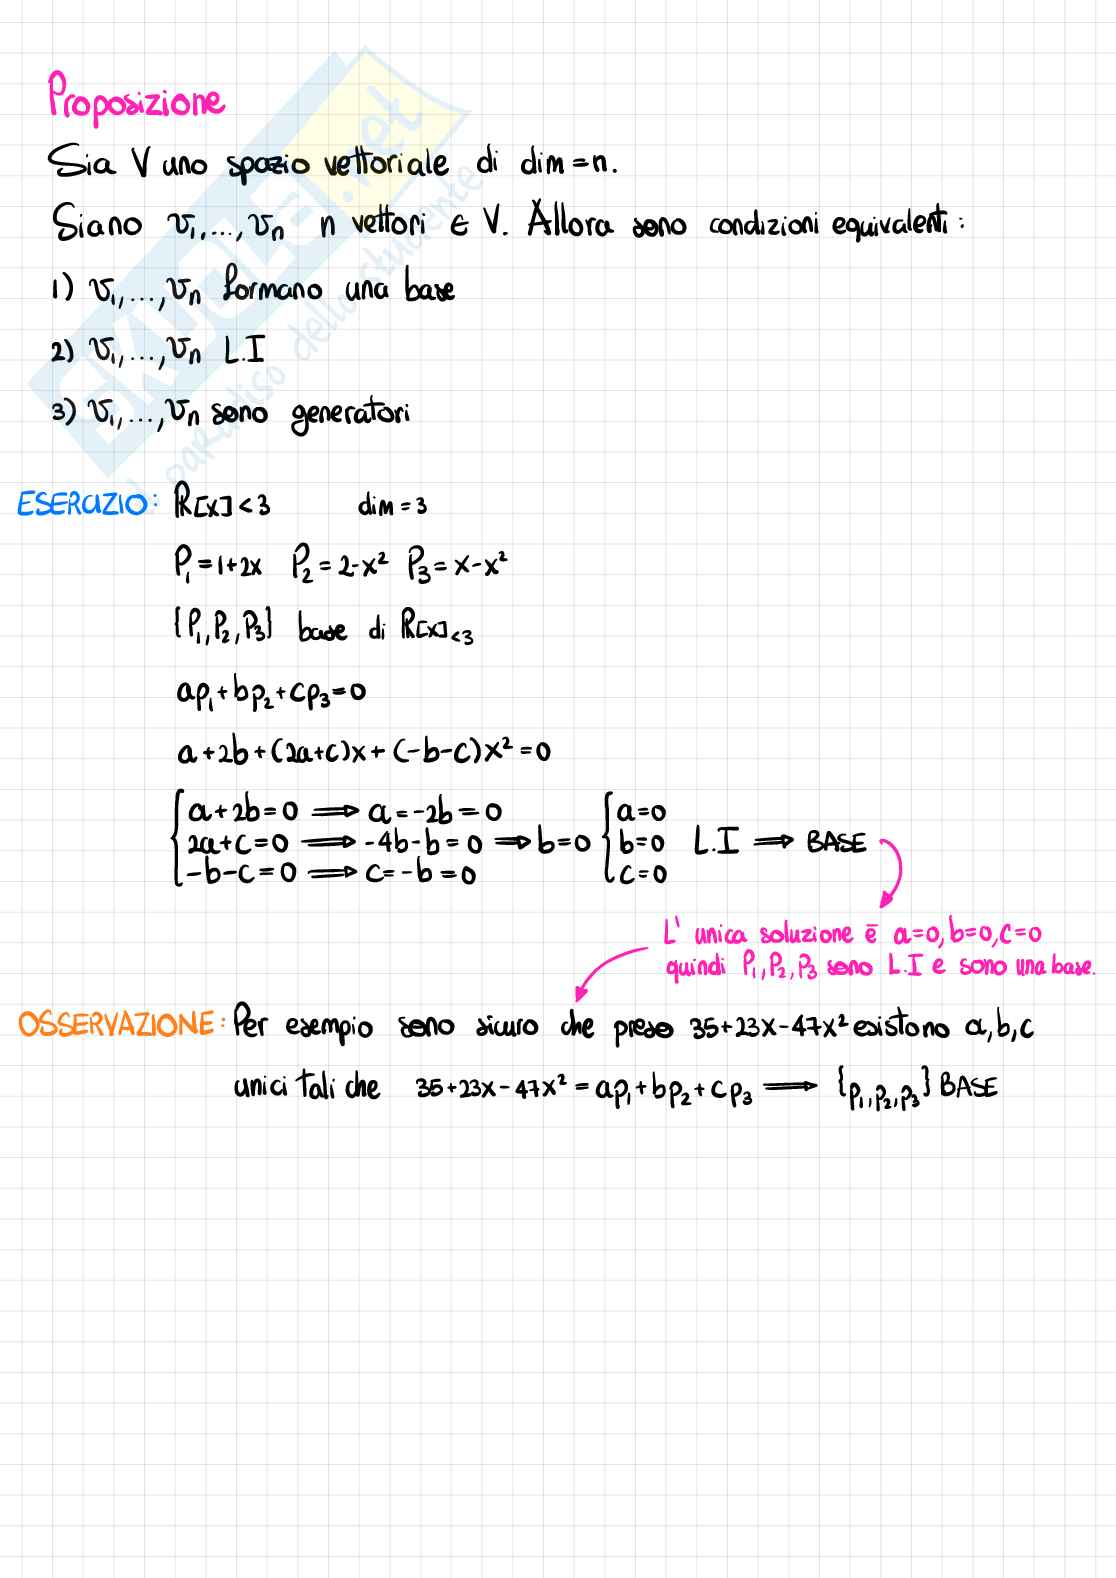 Proposizione
Sia V uno spazio vettoriale di dim=n.
Siano v₁,...,vₙ n vettori ∈ V. Allora sono condizioni equivalenti:
1) v₁,...,vₙ formano una base
2) v₁,...,vₙ L.I
3) v₁,...,vₙ sono generatori
ESERCIZIO: ℝ[x]<3 dim=3
P₁=1+2x P₂=2-x² P₃=x-x²
{P₁,P₂,P₃} base di ℝ[x]<3
ap₁+bp₂+cp₃=0
a+2b+(2a+c)x+(-b-c)x²=0
a+2b=0 ⟹ a=-2b=0 a=0
2a+c=0 ⟹ -4b-b=0 ⟹ b=0 b=0 L.I ⟹ BASE
-b-c=0 ⟹ c=-b=0 c=0
L' unica soluzione ē a=0,b=0,c=0
quindi P₁,P₂,P₃ sono L.I e sono una base.
OSSERVAZIONE: Per esempio sono sicuro che preso 35+23x-47x² esistono a,b,c
unici tali che 35+23x-47x²=ap₁+bp₂+cp₃ ⟹ {p₁,p₂,p₃} BASE
SKUOLA.net
il paradiso dello studente